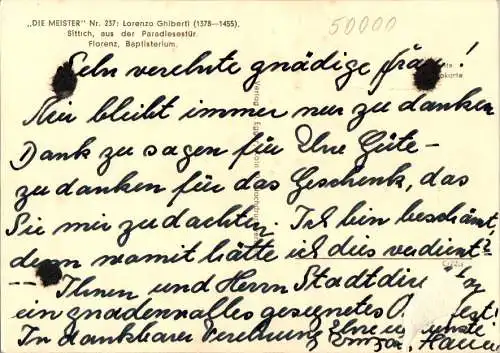 „DIE MEISTER" Nr. 237: Lorenzo Ghiberti (1378—1455).
Sittich, aus der Paradiesestür.
Florenz, Baptisterium.
50000
Sehr verehrte gnädige Frau!
Mir bleibt immer nur zu danken
Dank zu sagen für Ihre Güte –
zu danken für das Geschenk, das
Sie mir zudachten. Ich bin beschämt,
denn womit hätte ich dies verdient?
– Ihnen und Herrn Stadtdir
ein gnadenvolles gesegnetes fest!
In dankbarer Verehrung Ihre